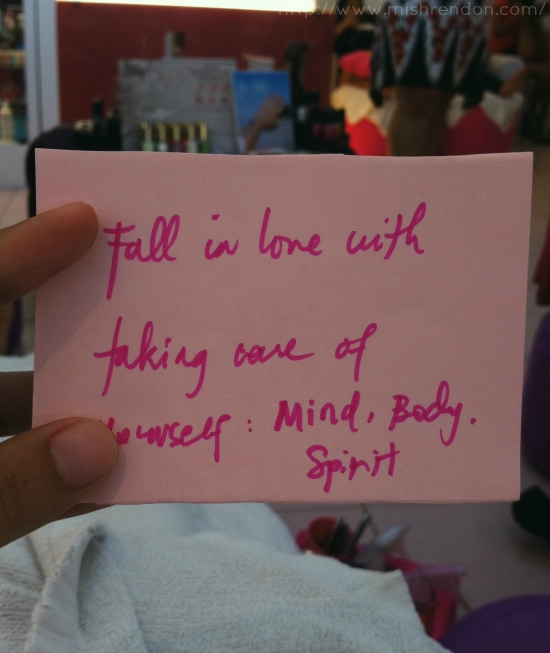 http://www.mishrendon.com/
Fall in love with
taking care of
yourself: Mind, Body.
Spirit